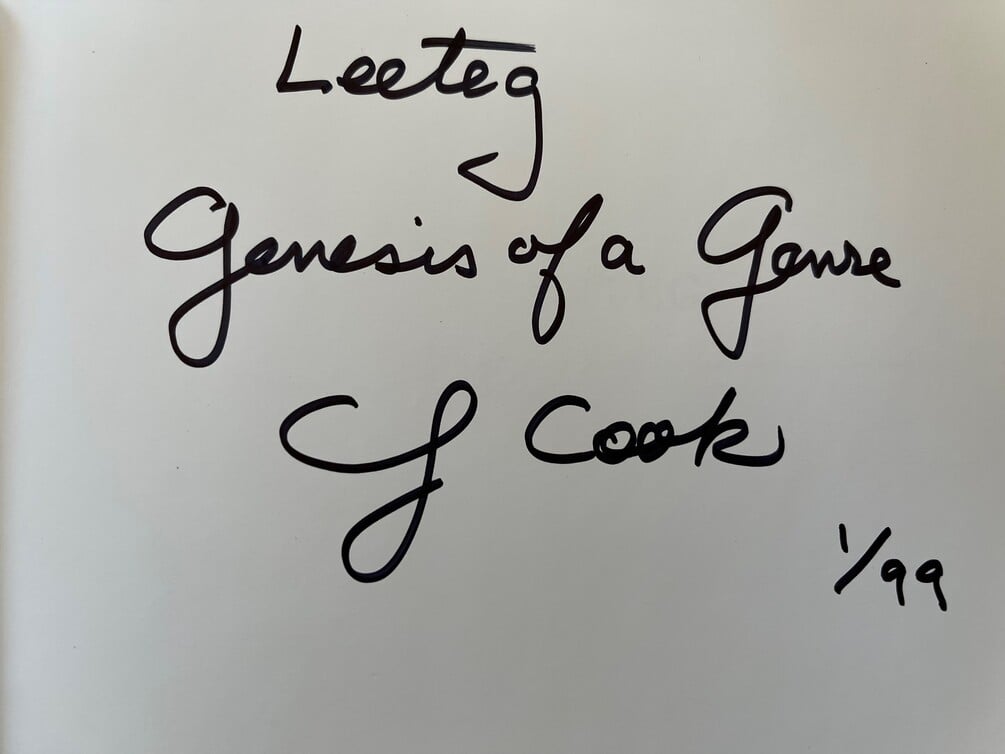 Leeteg
Genesis of a Genre
CJ Cook
1/99